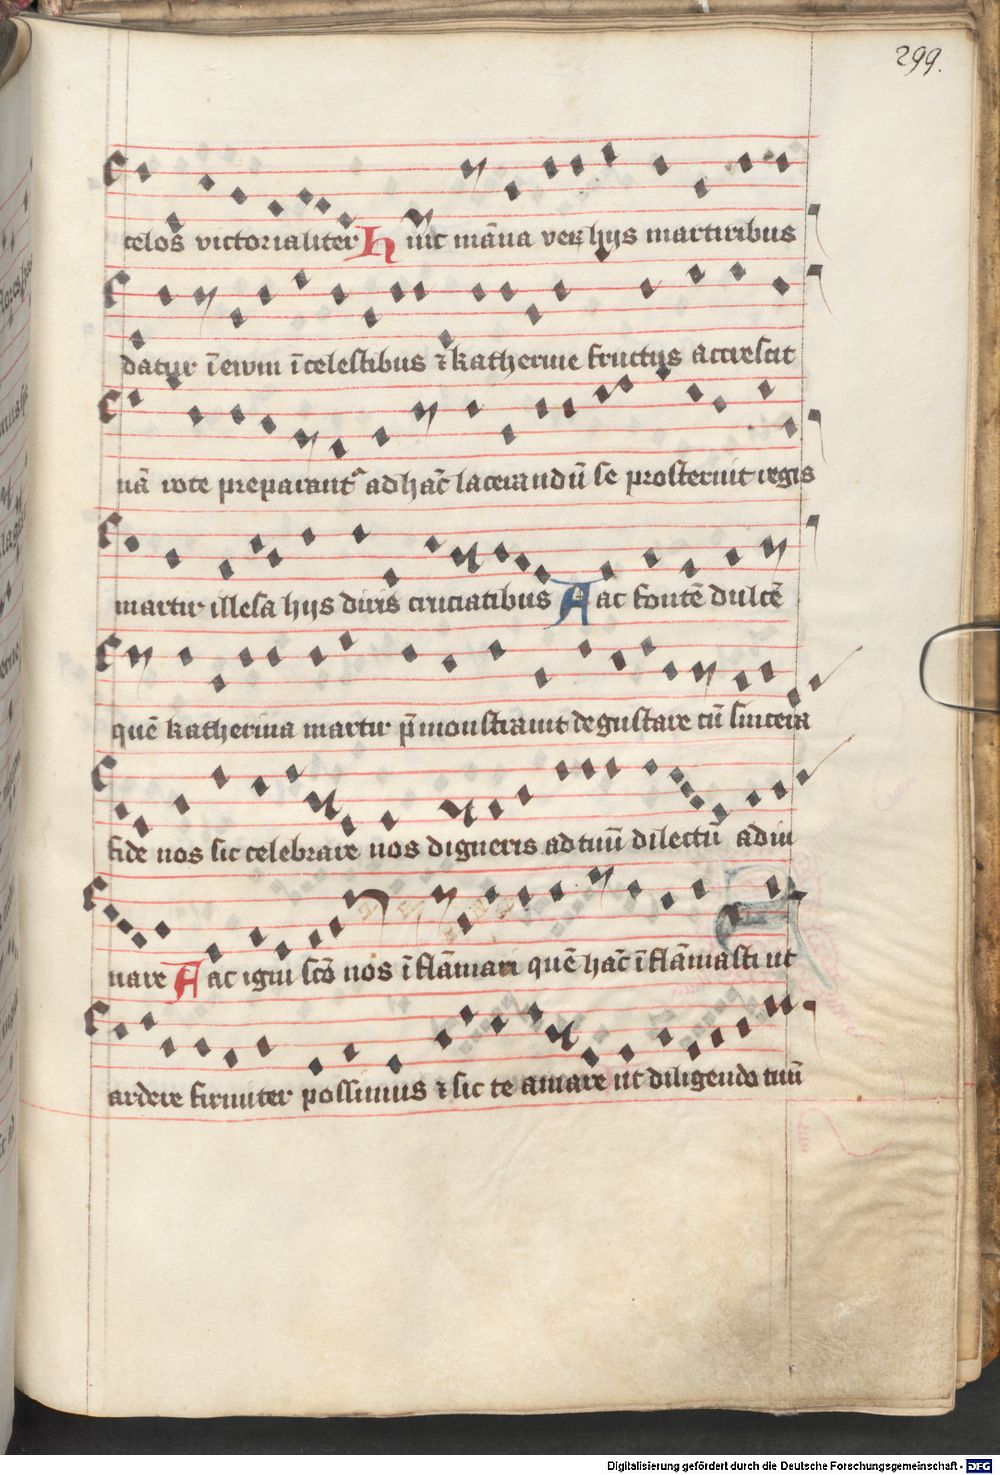 299.
celos victorialiter Huic mãna veꝝ hijs martiribus
datur ĩ ewm ĩ celestibus ⁊ katherine fructus accrescit
nã rote preparant᷑ ad hãc lacerandũ se prosternit regis
martir illesa hijs diris cruciatibus Fac fontẽ dulcẽ
quẽ katherina martir p̃monstrauit degustare cũ sincera
fide nos sic celebrare nos digneris ad tuũ dilectũ adiu
uare Fac igni sc̃o nos ĩflãmari quẽ hãc ĩflãmasti ut
ardere firmiter possimus ⁊ sic te amare ut diligendo tuũ
Digitalisierung gefördert durch die Deutsche Forschungsgemeinschaft - DFG